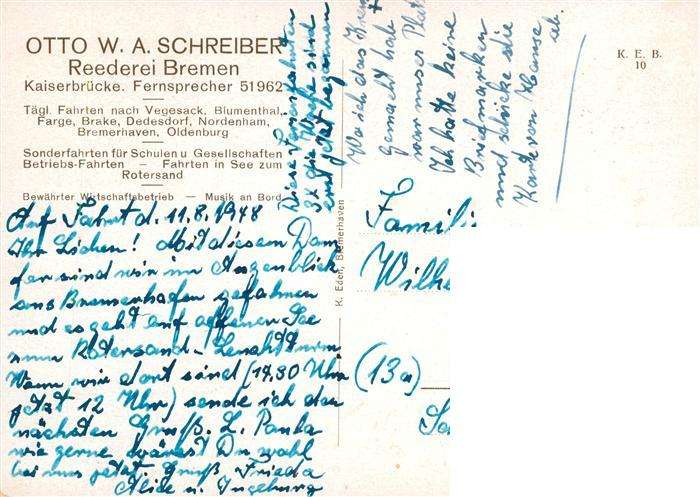 OTTO W. A. SCHREIBER
Reederei Bremen
Kaiserbrücke. Fernsprecher 51962
Tägl. Fahrten nach Vegesack, Blumenthal,
Farge, Brake, Dedesdorf, Nordenham,
Bremerhaven, Oldenburg
Sonderfahrten für Schulen u Gesellschaften
Betriebs-Fahrten — Fahrten in See zum
Rotersand
Bewährter Wirtschaftsbetrieb — Musik an Bord
Auf Fahrt d. 11.8.1948
Ihr Lieben! Mit diesem Dam
fer sind wir im Augenblick
aus Bremerhafen gefahren
und es geht auf offener See
zum Rotersand-Leuchtturm
Wenn wir dort sind (14.30 Uhr
jetzt 12 Uhr) sende ich den
nächsten Gruß. L. Paula
wie gerne wärest Du wohl
bei uns jetzt. Gruß Frieda
Alide u. Ingeburg
Diese Sonderfahrten
3x die Woche sind
erst jetzt begonnen
Wo ich das Kreuz +
gemacht hab
war unser Platz
Ich hatte keine
Briefmarken
und schicke die
Karte von Hause
ab.
K. E. B.
10
K. Eden, Bremerhaven
Famili
Wilhe
(13a)